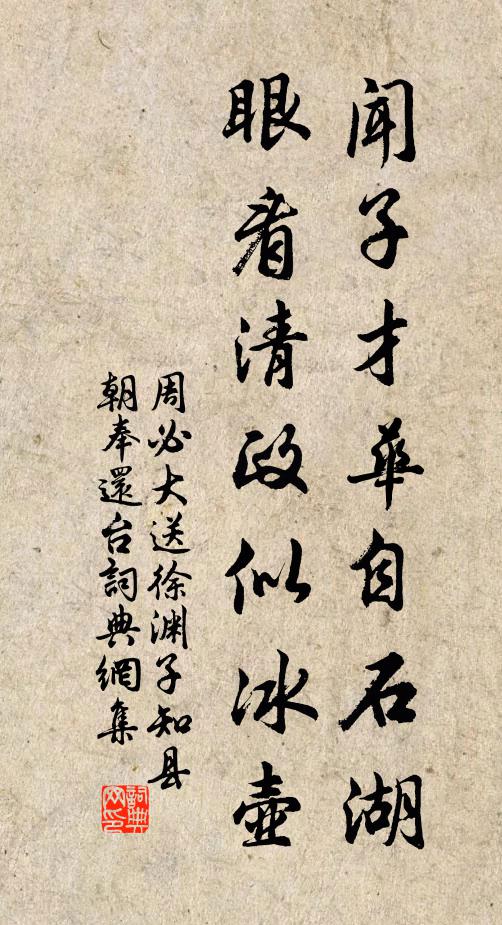 闻子才华自石湖
眼看清政似冰壶
周必大送徐渊子知县
朝奉還台詞典網集
詞典网印